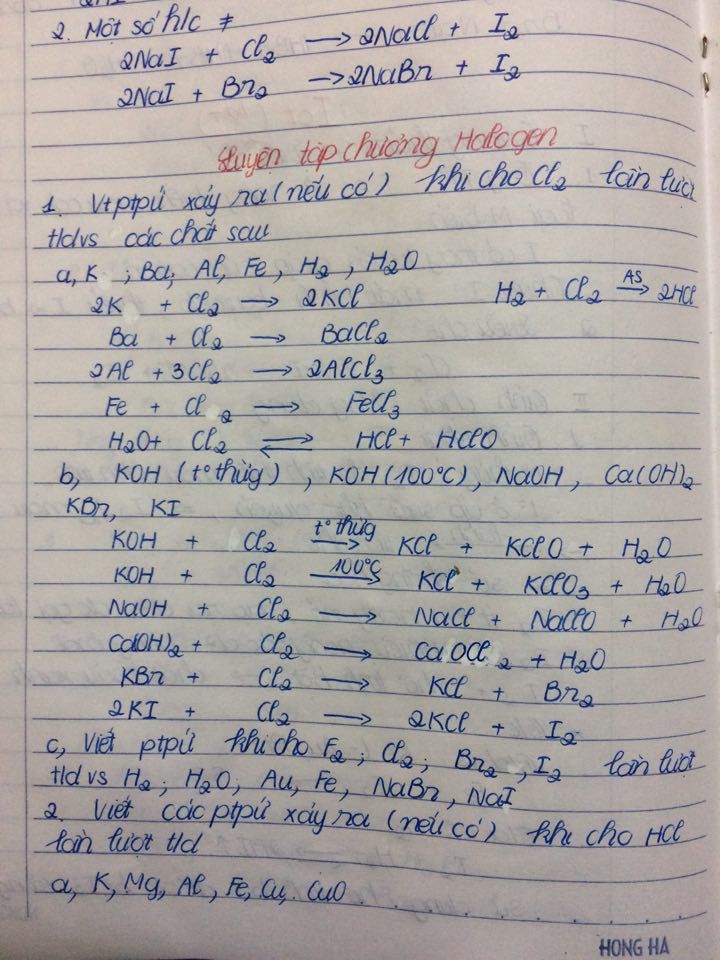 2. Một số h/c ≠
2NaI + Cl₂ → 2NaCl + I₂
2NaI + Br₂ → 2NaBr + I₂
Luyện tập chương Halogen
1. Vtptpứ xảy ra (nếu có) khi cho Cl₂ lần lượt
t/dvs các chất sau
a, K ; Ba; Al, Fe, H₂, H₂O
2K + Cl₂ → 2KCl H₂ + Cl₂ →(AS) 2HCl
Ba + Cl₂ → BaCl₂
2Al + 3Cl₂ → 2AlCl₃
Fe + Cl₂ → FeCl₃
H₂O + Cl₂ ⇌ HCl + HClO
b, KOH (t° thừg), KOH (100°C), NaOH, Ca(OH)₂
KBr, KI
KOH + Cl₂ →(t° thừg) KCl + KClO + H₂O
KOH + Cl₂ →(100°C) KCl + KClO₃ + H₂O
NaOH + Cl₂ → NaCl + NaClO + H₂O
Ca(OH)₂ + Cl₂ → CaOCl₂ + H₂O
KBr + Cl₂ → KCl + Br₂
2KI + Cl₂ → 2KCl + I₂
c, Viết ptpứ khi cho F₂; Cl₂; Br₂, I₂ lần lượt
t/dvs H₂; H₂O, Au, Fe, NaBr, NaI
2. Viết các ptpứ xảy ra (nếu có) khi cho HCl
lần lượt t/d
a, K, Mg, Al, Fe, Cu, CuO
HONG HA